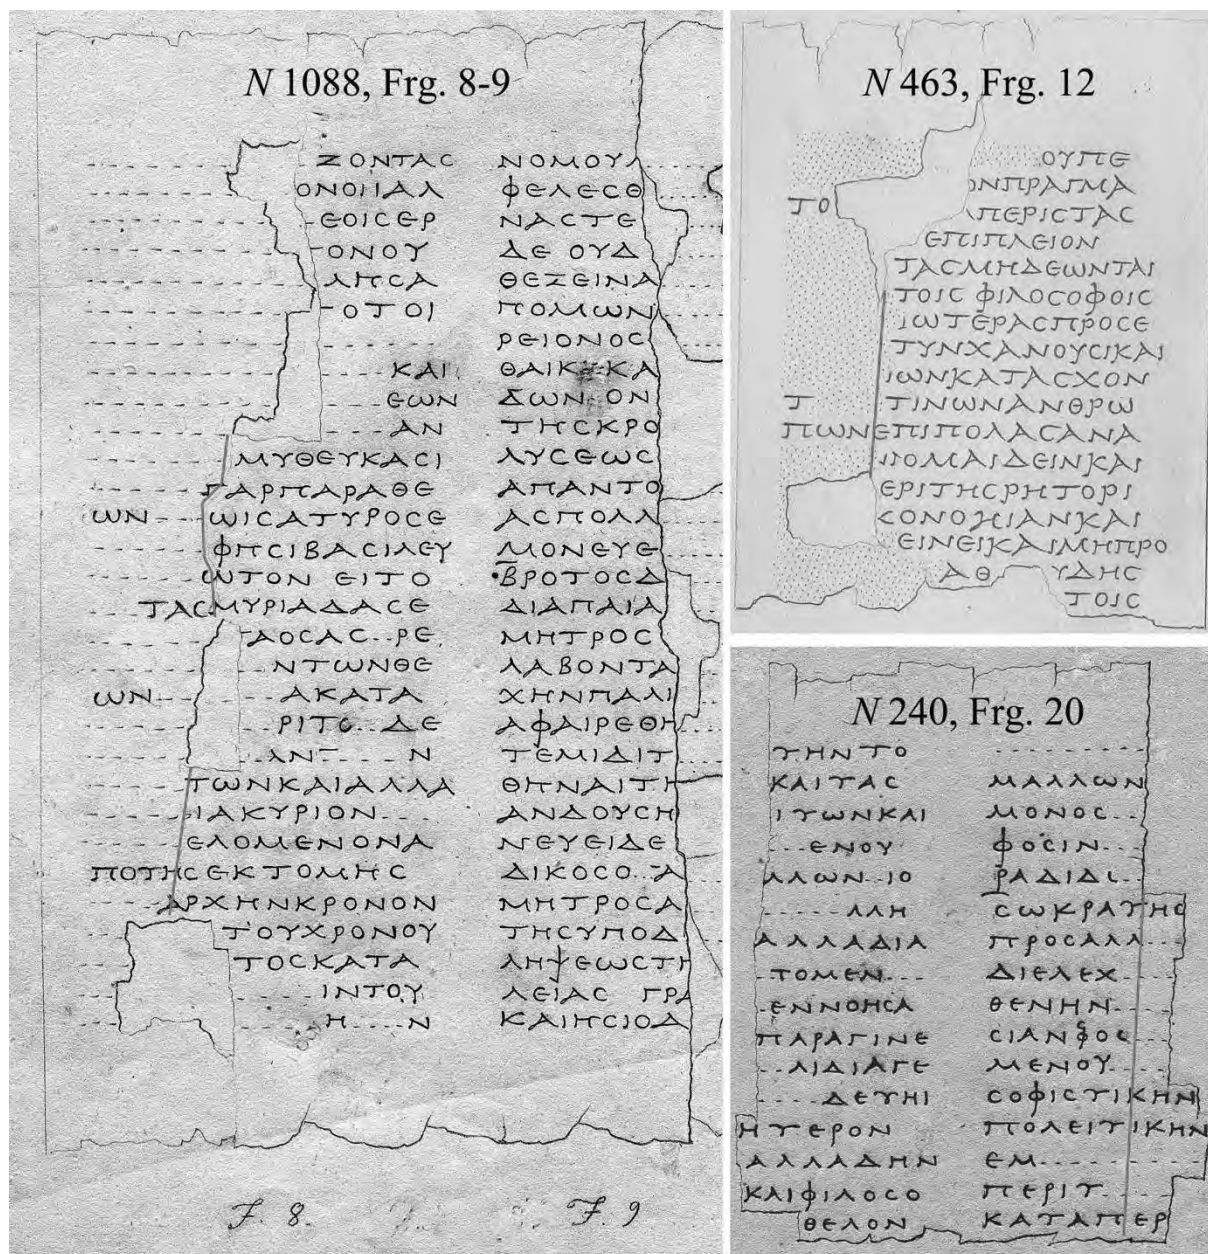 N 1088, Frg. 8-9
ΖΟΝΤΑϹ
ΟΝΟΠΑΛ
ΕΟΙϹΕΡ
ΟΝΟΥ
ΛΠϹΑ
ΟΤΟΙ
ΚΑΙ
ΕΩΝ
ΑΝ
ΜΥΘΕΥΚΑϹΙ
ΠΑΡΠΑΡΑΘΕ
ΩΝ ΩΙϹΑΤΥΡΟϹΕ
ΦΗϹΙΒΑϹΙΛΕΥ
ΩΤΟΝ ΕΙΤΟ
ΤΑϹΜΥΡΙΑΔΑϹΕ
ΑΟϹΑϹ ΡΕ
ΝΤΩΝΘΕ
ΩΝ ΑΚΑΤΑ
ΡΙΤΟ ΔΕ
ΑΝ Ν
ΤΩΝΚΑΙΑΛΛΑ
ΙΑΚΥΡΙΟΝ
ΕΛΟΜΕΝΟΝΑ
ΠΟΤΗϹΕΚΤΟΜΗϹ
ΑΡΧΗΝΚΡΟΝΟΝ
ΤΟΥΧΡΟΝΟΥ
ΤΟϹΚΑΤΑ
ΙΝΤΟΥ
Η Ν
ΝΟΜΟΥΛ
ΦΕΛΕϹΘ
ΝΑϹΤΕ
ΔΕ ΟΥΔ
ΘΕΖΕΙΝΑ
ΠΟΛΩΝ
ΡΕΙΟΝΟϹ
ΘΑΙΚ ΚΑ
ΔΩΝ ΟΝ
ΤΗϹΚΡΟ
ΛΥϹΕΩϹ
ΑΠΑΝΤΟ
ΑϹΠΟΛΛ
ΜΟΝΕΥΕ
ΒΡΟΤΟϹΔ
ΔΙΑΠΑΙΑ
ΜΗΤΡΟϹ
ΛΑΒΟΝΤΑ
ΧΗΝΠΑΛΙ
ΑΦΑΙΡΕΘΗ
ΤΕΜΙΔΙΤ
ΘΗΝΑΙΤΗ
ΑΝΔΟΥϹΗ
ΝΕΥΕΙΔΕ
ΔΙΚΟϹΟ Α
ΜΗΤΡΟϹΑ
ΤΗϹΥΠΟΔ
ΛΗΨΕΩϹΤΗ
ΛΕΙΑϹ ΓΡΑ
ΚΑΙΗϹΙΟΔ
F. 8.
F. 9
N 463, Frg. 12
ΟΥΠΕ
ΟΝΠΡΑΓΜΑ
ΤΟ ΠΕΡΙϹΤΑϹ
ΕΠΙΠΛΕΙΟΝ
ΤΑϹΜΗΔΕΩΝΤΑΙ
ΤΟΙϹ ΦΙΛΟϹΟΦΟΙϹ
ΙΩΤΕΡΑϹΠΡΟϹΕ
ΤΥΝΧΑΝΟΥϹΙΚΑΙ
ΙΩΝΚΑΤΑϹΧΟΝ
Τ ΤΙΝΩΝΑΝΘΡΩ
ΠΩΝΕΠΙΠΟΛΑϹΑΝΑ
ΝΟΜΑΙΔΕΙΝΚΑΙ
ΕΡΙΤΗϹΡΗΤΟΡΙ
ϹΟΝΟΗΙΑΝΚΑΙ
ΕΙΝΕΙΚΑΙΜΗΠΡΟ
ΑΘ ΥΔΗϹ
ΤΟΙϹ
N 240, Frg. 20
ΤΗΝΤΟ
ΚΑΙΤΑϹ
ΙΤΩΝΚΑΙ
ΕΝΟΥ
ΑΛΩΝ ΙΟ
ΛΛΗ
ΑΛΛΑΔΙΑ
ΤΟΜΕΝ
ΕΝΝΟΗϹΑ
ΠΑΡΑΓΙΝΕ
ΛΙΔΙΑΓΕ
ΔΕΤΗΙ
ΗΤΕΡΟΝ
ΑΛΛΑΔΗΝ
ΚΑΙΦΙΛΟϹΟ
ΘΕΛΟΝ
ΜΑΛΛΩΝ
ΜΟΝΟϹ
ΦΟϹΙΝ
ΡΑΔΙΔΙ
ϹΩΚΡΑΤΗϹ
ΠΡΟϹΑΛΛ
ΔΙΕΛΕΧ
ΘΕΝΗΝ
ϹΙΑΝΦΟϹ
ΜΕΝΟΥ
ϹΟΦΙϹΤΙΚΗΝ
ΠΟΛΕΙΤΙΚΗΝ
ΕΜ
ΠΕΡΙΤ
ΚΑΤΑΠΕΡ